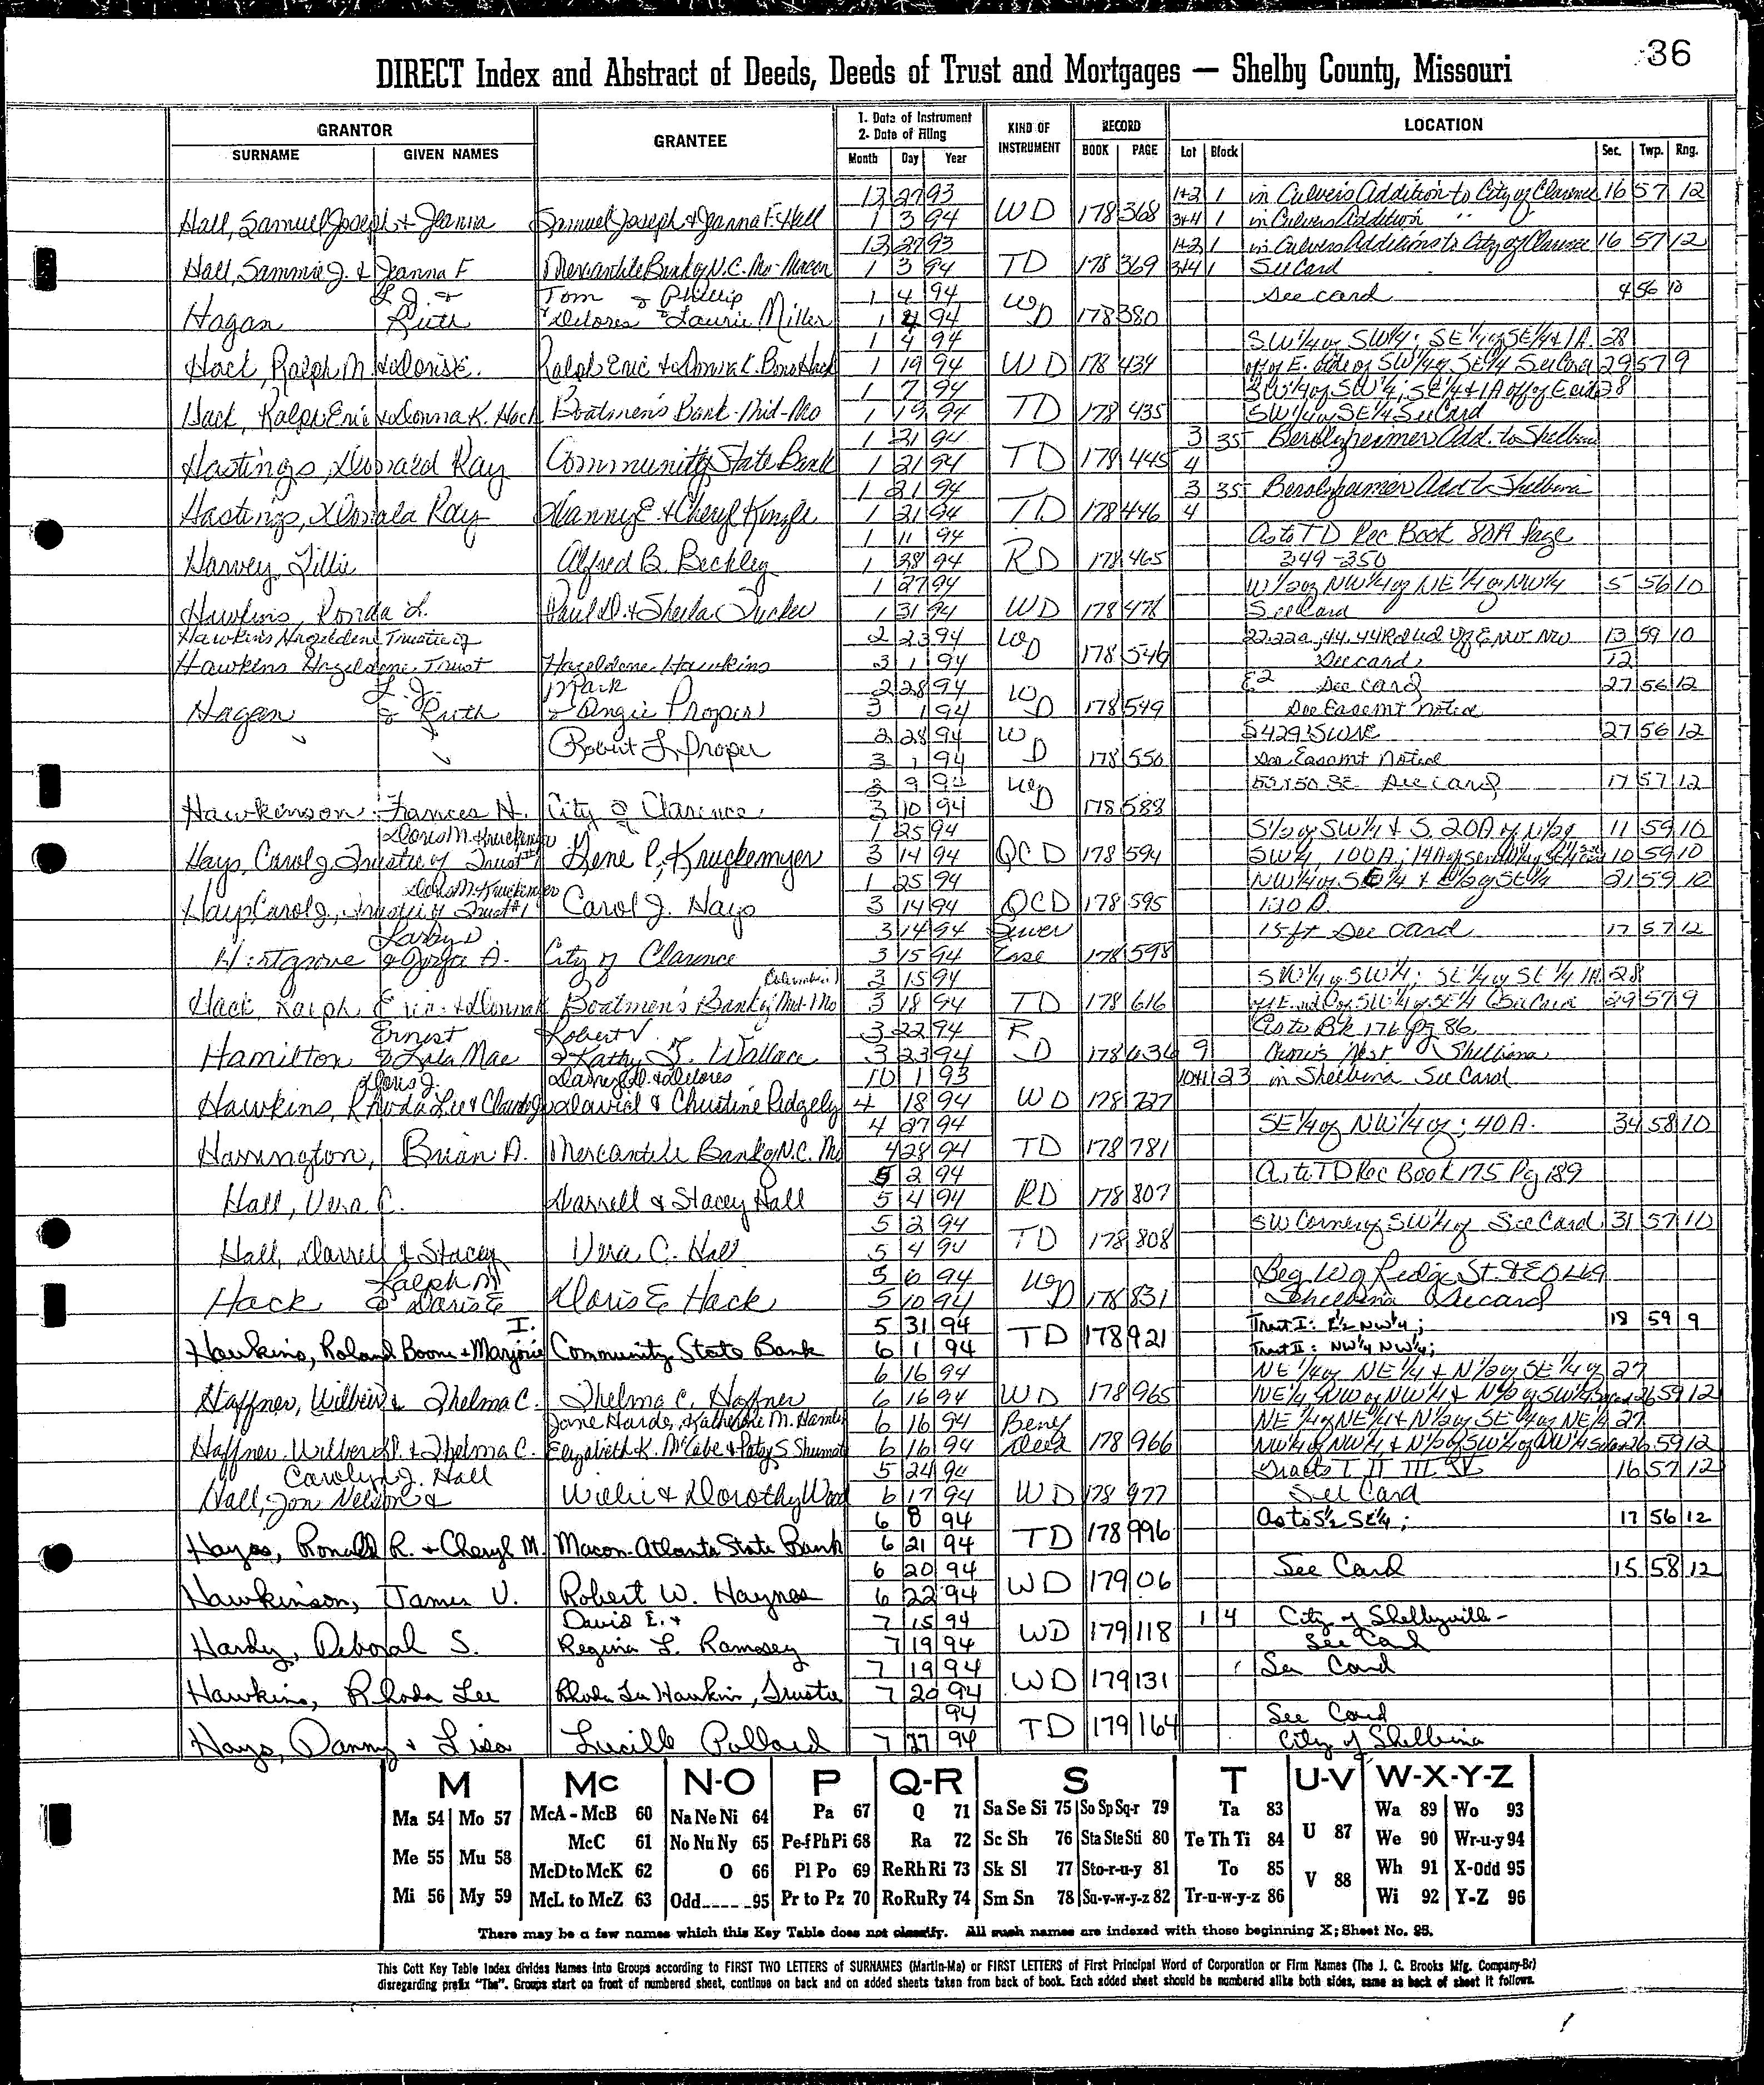 36
DIRECT Index and Abstract of Deeds, Deeds of Trust and Mortgages — Shelby County, Missouri
GRANTOR GRANTEE 1. Date of Instrument 2. Date of Filing KIND OF INSTRUMENT RECORD LOCATION
SURNAME GIVEN NAMES Month Day Year BOOK PAGE Lot Block Sec. Twp. Rng.
12 27 93 1+2 1 in Culvers Addition to City of Clarence 16 57 12
Hall, Samuel Joseph & Jeanna Samuel Joseph & Jeanna F. Hall 1 3 94 WD 178 368 3+4 1 in Culvers Addition "
12 27 93 1+2 1 in Culvers Additions to City of Clarence 16 57 12
Hall, Sammie J. & Jeanna F Mercantile Bank of N.C. Mo-Macon 1 3 94 TD 178 369 3+4 1 See Card
L. J. & Tom & Phillip 1 4 94 See card 4 56 10
Hagan Ruth Delores Laurie Miller 1 4 94 WD 178 380
1 4 94 SW 1/4 of SW 1/4; SE 1/4 of SE 1/4 & 1A. 28
Hack, Ralph M & Doris E. Ralph Eric & Donna K. Hack 1 19 94 WD 178 434 off of E. side of SW 1/4 of SE 1/4 See Card 29 57 9
1 7 94 SW 1/4 of SW 1/4; SE 1/4 & 1A off of E side 28
Hack, Ralph Eric & Donna K. Hack Boatmen's Bank-Mid-Mo 1 19 94 TD 178 435 SW 1/4 of SE 1/4 See Card
1 21 94 3 35 Berolzheimer Add. to Shelbina
Hastings, Donald Ray Community State Bank 1 21 94 TD 178 445 4
1 21 94 3 35 Berolzheimer Add to Shelbina
Hastings, Donald Ray Danny E. & Cheryl Kinzle 1 21 94 TD 178 446 4
1 11 94 As to TD Rec Book 80A Page
Harvey, Lillie Alfred B. Beckley 1 28 94 RD 178 465 349-350
1 27 94 W 1/2 of NW 1/4 of NE 1/4 of NW 1/4 5 56 10
Hawkins, Ronda L. Paul D. & Sheila Tucker 1 31 94 WD 178 478 See Card
Hawkins Hazeldene Trustee of 2 23 94 13 59 10
Hawkins Hazeldene Trust Hazeldene Hawkins 3 1 94 WD 178 546 See card 12
L. J. Mark 2 28 94 E2 See card 27 56 12
Hagan & Ruth & Angie Proper 3 1 94 WD 178 549 See Easemt noted
2 28 94 S 429' SWNE 27 56 12
Robert L. Proper 3 1 94 WD 178 550 See Easemt noted
50x50 SE See Card 17 57 12
Hawkinson Frances H. City of Clarence 3 10 94 WD 178 588
Doris M. Kruckemyer 1 25 94 S 1/2 of SW 1/4 & S. 20A of N 1/2 of 11 59 10
Hays, Carol J. Trustee of Trust #1 Gene P. Kruckemyer 3 14 94 QCD 178 594 SW 1/4, 100 A; 10 59 10
Doris M. Kruckemyer 1 25 94 NW 1/4 of SE 1/4 & E 1/2 of SE 1/4 21 59 10
Hays Carol J., Trustee of Trust #1 Carol J. Hays 3 14 94 QCD 178 595 120 A.
Larry D 3 14 94 Sewer 15 ft See Card 17 57 12
Hartgrove & Joyce A. City of Clarence 3 15 94 Ease 178 598
Columbia 3 15 94 SW 1/4 of SW 1/4; SE 1/4 of SE 1/4 1A. 28
Hack, Ralph Eric & Donna K Boatmen's Bank of Mid-Mo 3 18 94 TD 178 616 of E. side of SW 1/4 of SE 1/4 See Card 29 57 9
Ernest Robert V. 3 22 94 As to Bk 176 Pg 86
Hamilton & Lula Mae & Kathy F. Wallace 3 23 94 RD 178 634 9 Crow's Nest Shelbina
Doris J. Darrell D. & Delores 10 1 93 10+11 23 in Shelbina See Card
Hawkins, Rhoda Lee & Claude J David & Christine Ridgely 4 18 94 WD 178 727
4 27 94 SE 1/4 of NW 1/4 of; 40 A. 34 58 10
Harrington, Brian A. Mercantile Bank of N.C. Mo 4 28 94 TD 178 781
5 2 94 As to TD Rec Book 175 Pg 189
Hall, Vera C. Darrell & Stacey Hall 5 4 94 RD 178 807
5 2 94 SW Corner of SW 1/4 of See Card 31 57 10
Hall, Darrell & Stacey Vera C. Hall 5 4 94 TD 178 808
Ralph M 5 6 94 Beg W of Ridge St. & E of L 69
Hack & Doris E Doris E Hack 5 10 94 WD 178 831 Shelbina See card
I. 5 31 94 Tract I: E 1/2 NW 1/4; 18 59 9
Hawkins, Roland Boone & Marjorie Community State Bank 6 1 94 TD 178 921 Tract II: NW 1/4 NW 1/4;
6 16 94 NE 1/4 of NE 1/4 & N 1/2 of SE 1/4 of 27
Haffner, Wilbur & Thelma C. Thelma C. Haffner 6 16 94 WD 178 965 NE 1/4; NW of NW 1/4 & N 1/2 of SW 1/4 See Card 26 59 12
Jane Harder, Katherine M. Hamlin 6 16 94 Benef NE 1/4 of NE 1/4 & N 1/2 of SE 1/4 of NE 1/4 27
Haffner, Wilbur D. & Thelma C. Elizabeth K. McCabe & Patsy S. Shumate 6 16 94 Deed 178 966 NW 1/4 of NW 1/4 & N 1/2 of SW 1/4 of NW 1/4 See Card 26 59 12
Carolyn J. Hall 5 24 94 Tracts I II III IV 16 57 12
Hall, Jon Nelson & Willie & Dorothy Wood 6 17 94 WD 178 977 See Card
6 8 94 As to S 1/2 SE 1/4; 17 56 12
Hayes, Ronald R. & Cheryl M. Macon-Atlanta State Bank 6 21 94 TD 178 996
6 20 94 See Card 15 58 12
Hawkinson, James V. Robert W. Haynes 6 22 94 WD 179 06
David E. & 7 15 94 1 4 City of Shelbyville-
Hardy, Deborah S. Regina L. Ramsey 7 19 94 WD 179 118 See Card
7 19 94 See Card
Hawkins, Rhoda Lee Rhoda Lee Hawkins, Trustee 7 20 94 WD 179 131
94 See Card
Hays, Danny & Lisa Lucille Pollard 7 27 94 TD 179 164 City of Shelbina
M Mc N-O P Q-R S T U-V W-X-Y-Z
Ma 54 Mo 57 McA - McB 60 Na Ne Ni 64 Pa 67 Q 71 Sa Se Si 75 So Sp Sq-r 79 Ta 83 U 87 Wa 89 Wo 93
McC 61 No Nu Ny 65 Pe-f Ph Pi 68 Ra 72 Sc Sh 76 Sta Ste Sti 80 Te Th Ti 84 We 90 Wr-u-y 94
Me 55 Mu 58 McD to McK 62 O 66 Pl Po 69 Re Rh Ri 73 Sk Sl 77 Sto-r-u-y 81 To 85 V 88 Wh 91 X-Odd 95
Mi 56 My 59 McL to McZ 63 Odd-----95 Pr to Pz 70 Ro Ru Ry 74 Sm Sn 78 Su-v-w-y-z 82 Tr-u-w-y-z 86 Wi 92 Y-Z 96
There may be a few names which this Key Table does not classify. All such names are indexed with those beginning X; Sheet No. 95.
This Cott Key Table Index divides Names into Groups according to FIRST TWO LETTERS of SURNAMES (Martin-Ma) or FIRST LETTERS of First Principal Word of Corporation or Firm Names (The J. C. Brooks Mfg. Company-Br)
disregarding prefix "The". Groups start on front of numbered sheet, continue on back and on added sheets taken from back of book. Each added sheet should be numbered alike both sides, same as back of sheet it follows.